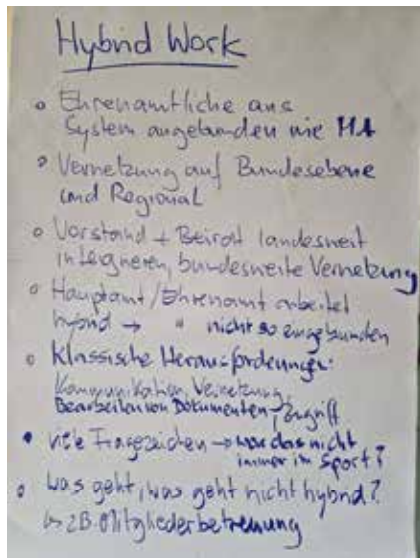 Hybrid Work
o Ehrenamtliche ans
System angebunden wie MA
o Vernetzung auf Bundesebene
und Regional
o Vorstand + Beirat landesweit
integrieren, bundesweite Vernetzung
o Hauptamt/Ehrenamt arbeitet
hybrid → " nicht so eingebunden
o Klassische Herausforderungen:
Kommunikation, Vernetzung,
Bearbeiten von Dokumenten, Zugriff
• viele Fragezeichen → war das nicht
immer im Sport?
o was geht, was geht nicht hybrid?
↳ z.B. Mitgliederbetreuung